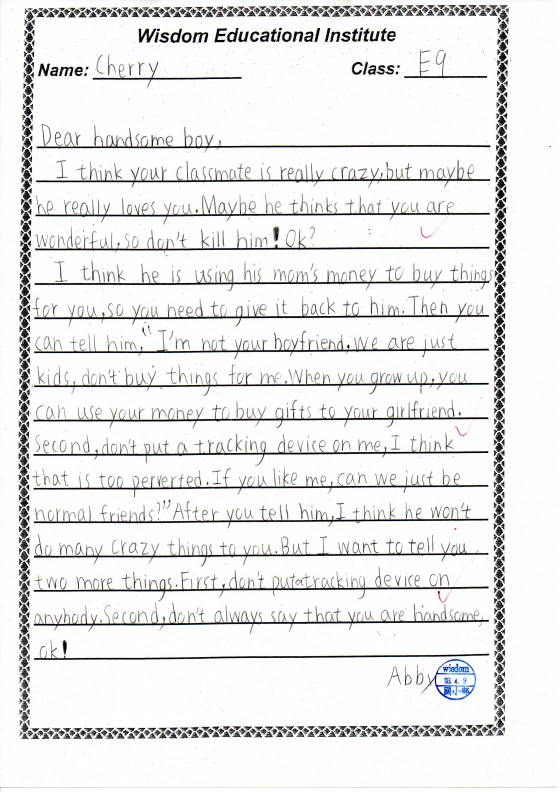 Wisdom Educational Institute
Name: Cherry Class: E9
Dear handsome boy,
I think your classmate is really crazy, but maybe
he really loves you. Maybe he thinks that you are
wonderful, so don't kill him! Ok?
I think he is using his mom's money to buy things
for you, so you need to give it back to him. Then you
can tell him, "I'm not your boyfriend. We are just
kids, don't buy things for me. When you grow up, you
can use your money to buy gifts to your girlfriend.
Second, don't put a tracking device on me, I think
that is too perverted. If you like me, can we just be
normal friends?" After you tell him, I think he won't
do many crazy things to you. But I want to tell you
two more things. First, don't put a tracking device on
anybody. Second, don't always say that you are handsome,
ok!
Abby
wisdom